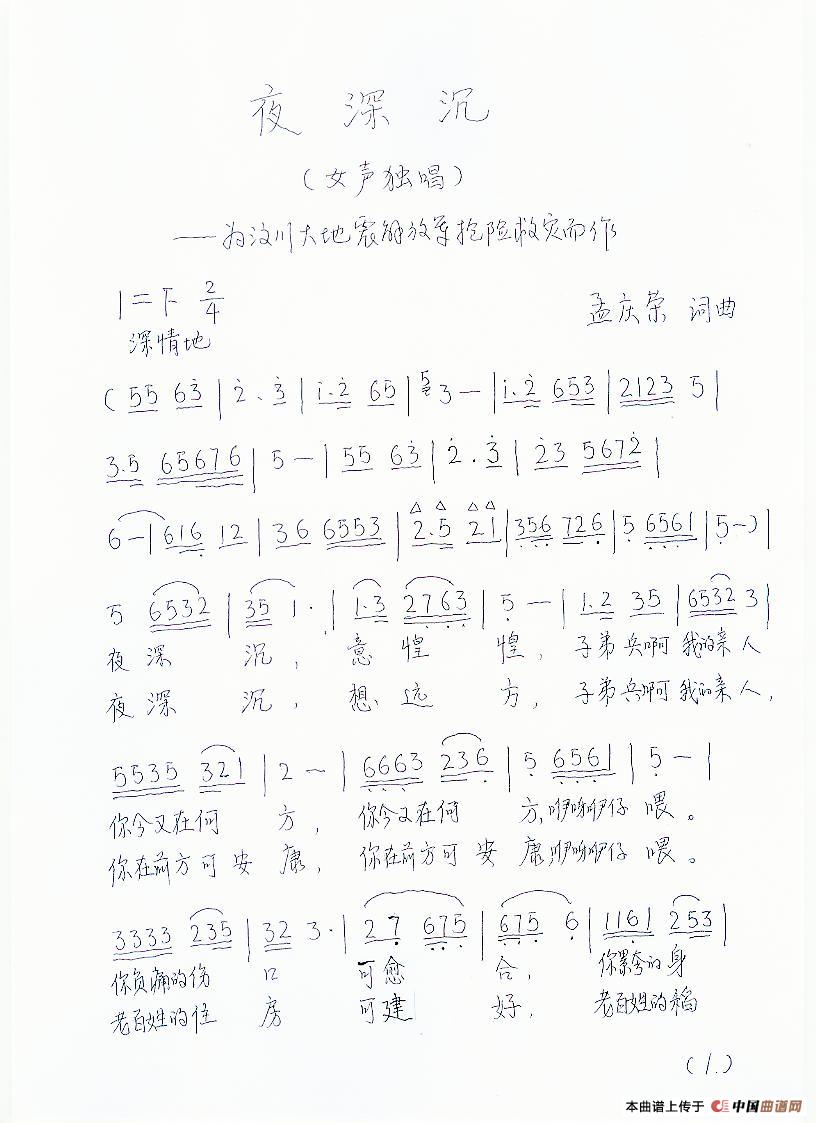 夜深沉
（女声独唱）
——为汶川大地震解放军抢险救灾而作
1=F 2/4
孟庆荣 词曲
深情地
( 55 63̇ | 2̇ . 3̇ | 1̇.2̇ 65 | 5 3 — | 1̇.2̇ 653 | 2123 5 |
3.5 65676 | 5 — | 55 63̇ | 2̇ . 3̇ | 2̇3 5672̇ |
6 — | 616 12 | 36 6553 | 2.5 21 | 356 726 | 5 6561 | 5 — ) |
5 6532 | 35 1 · | 1.3 2763 | 5 — | 1.2 35 | 6532 3 |
夜深 沉， 意惶 惶， 子弟兵啊 我的亲人
夜深 沉， 想远 方， 子弟兵啊 我的亲人，
5535 321 | 2 — | 6663 236 | 5 6561 | 5 — |
你今又在何 方， 你今又在何 方，咿呀咿仔 喂。
你在前方可安 康， 你在前方可安 康，咿呀咿仔 喂。
3333 235 | 32 3 · | 27 675 | 675 6 | 1161 253 |
你负痛的伤 口 可愈 合， 你累夸的身
老百姓的住 房 可建 好， 老百姓的
(1.)
本曲谱上传于 中国曲谱网